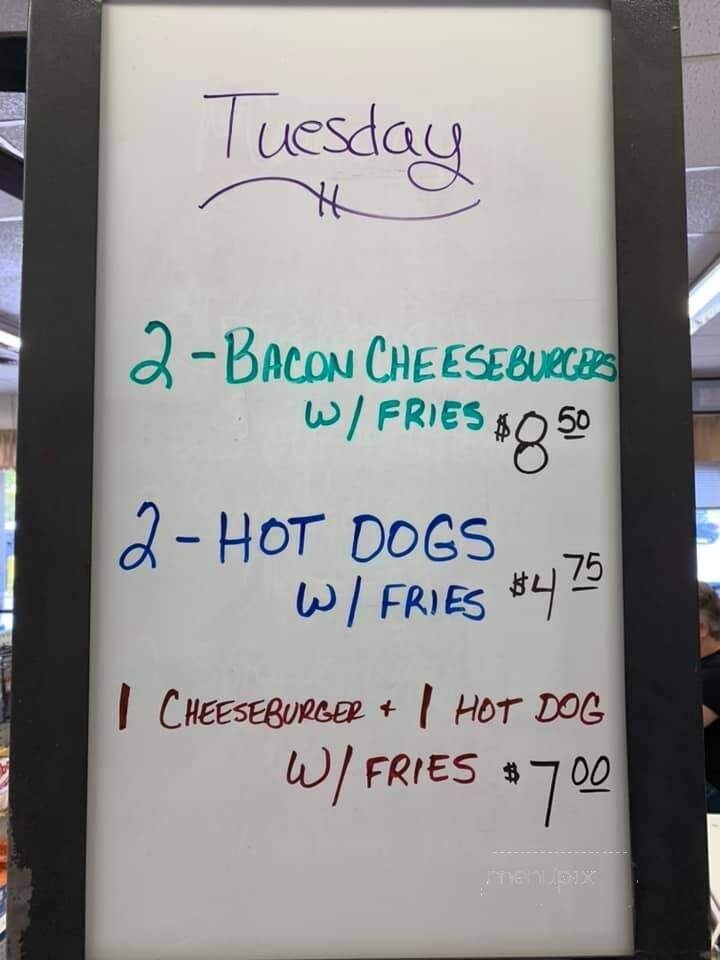 Tuesday
2-BACON CHEESEBURGERS
W/ FRIES $8 50
2-HOT DOGS
W/ FRIES $4 75
1 CHEESEBURGER + 1 HOT DOG
W/ FRIES $7 00
menupix